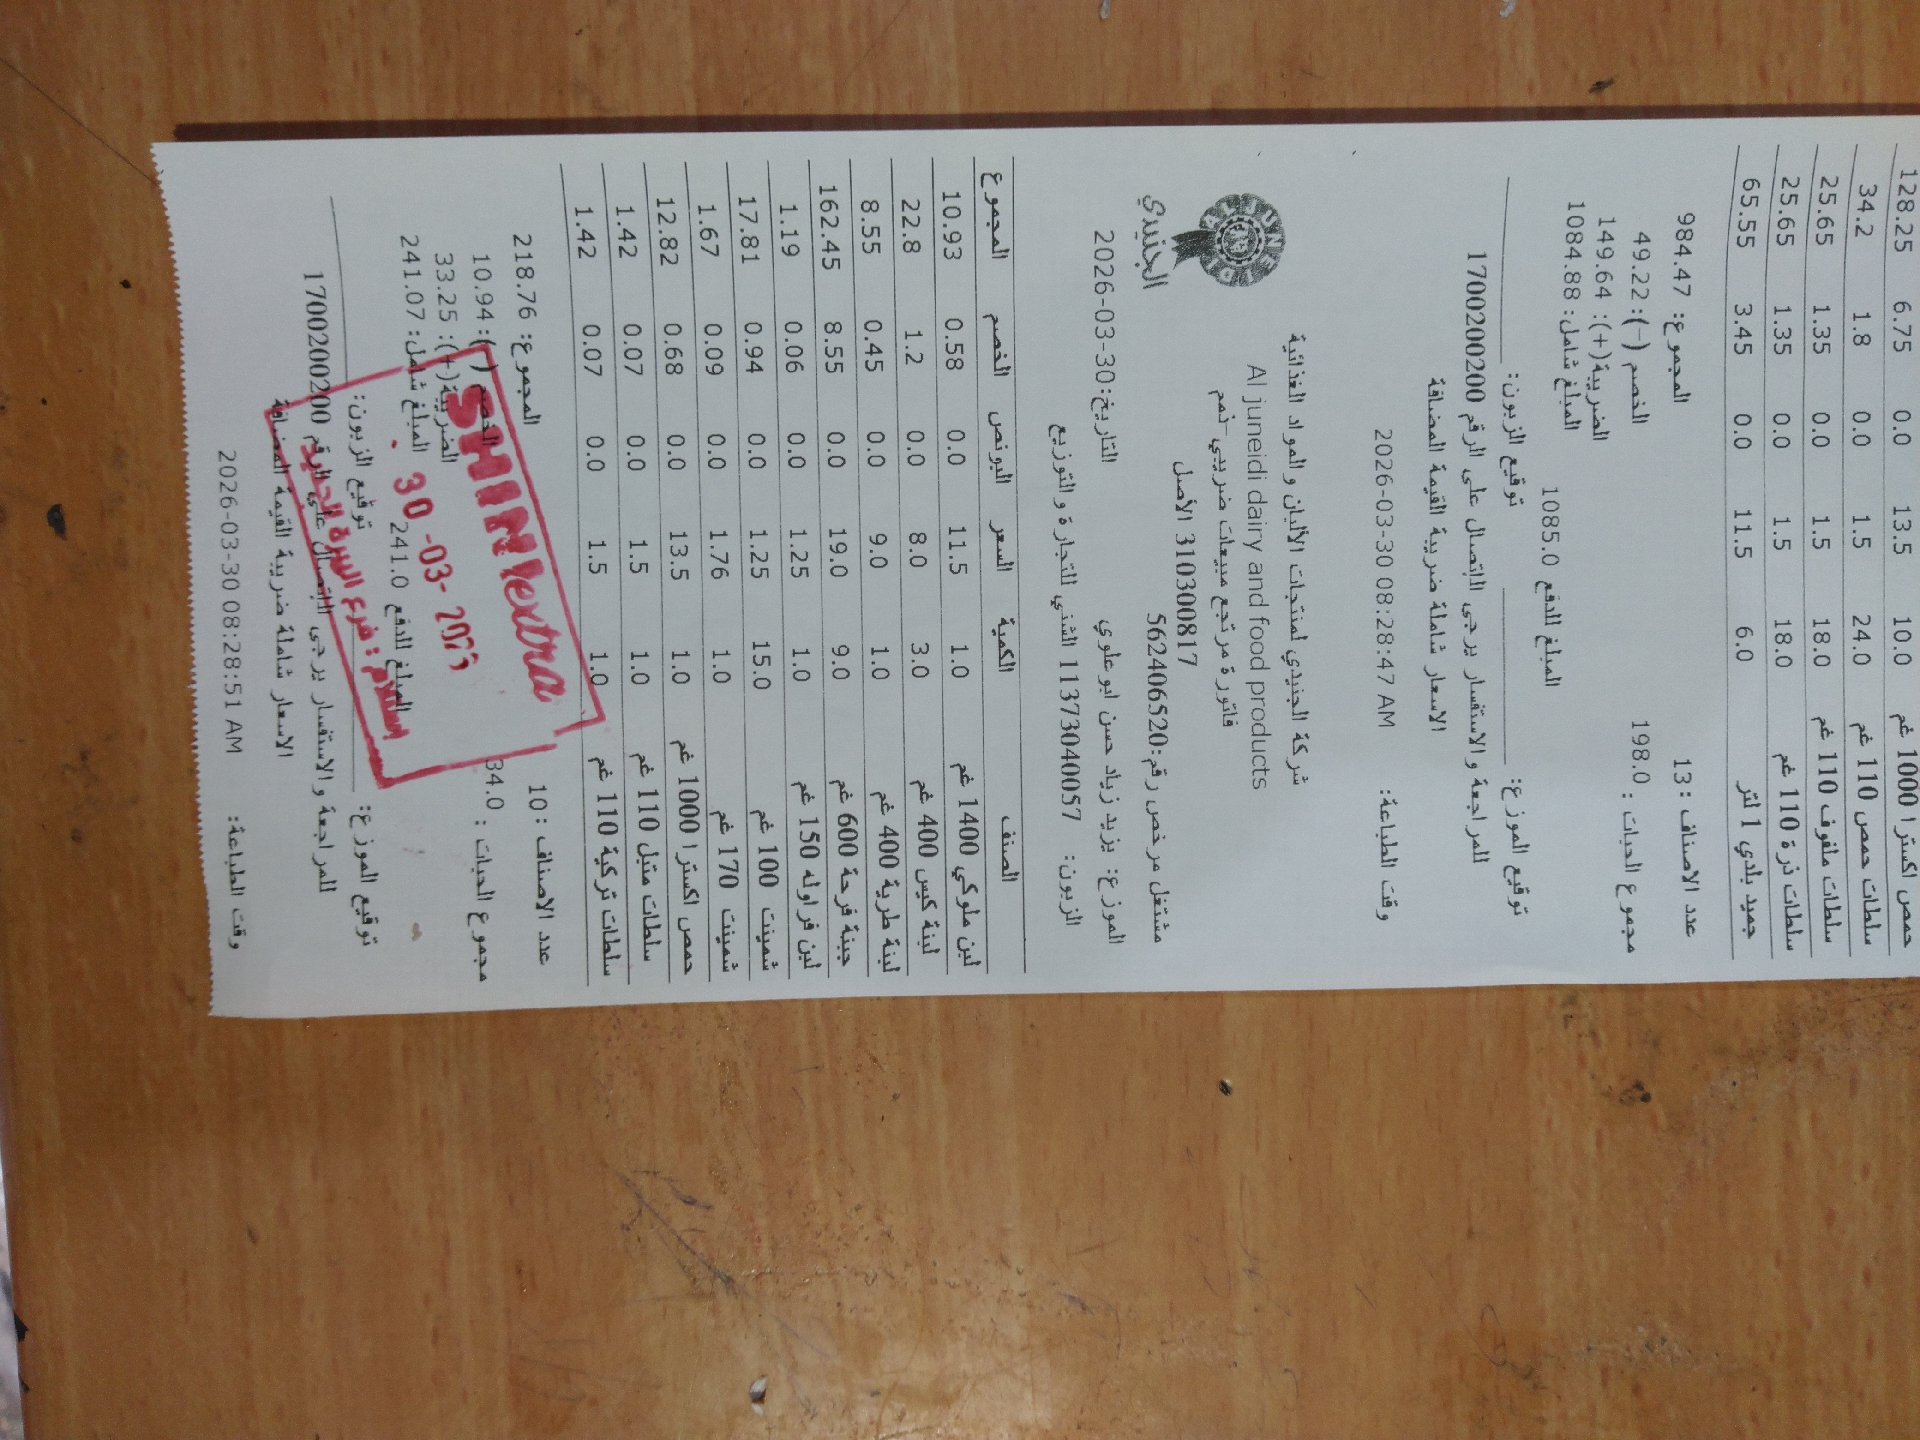 حمص اكسترا 1000 غم 10.0 13.5 0.0 6.75 128.25
سلطات حمص 110 غم 24.0 1.5 0.0 1.8 34.2
سلطات ملفوف 110 غم 18.0 1.5 0.0 1.35 25.65
سلطات ذرة 110 غم 18.0 1.5 0.0 1.35 25.65
جميد بلدي 1 لتر 6.0 11.5 0.0 3.45 65.55
عدد الاصناف : 13 المجموع: 984.47
مجموع الحبات : 198.0 الخصم (-): 49.22
الضريبة(+): 149.64
المبلغ شامل: 1084.88
المبلغ للدفع 1085.0
توقيع الموزع: توقيع الزبون:
للمراجعة و الاستفسار يرجى الاتصال على الرقم 1700200200
الاسعار شاملة ضريبة القيمة المضافة
وقت الطباعة: 2026-03-30 08:28:47 AM
شركة الجنيدي لمنتجات الألبان و المواد الغذائية
Al juneidi dairy and food products
AL JUNEIDI
الجنيدي
فاتورة مرتجع مبيعات ضريبي -ذمم
310300817 الأصل
مشتغل مرخص رقم:562406520
الموزع: يزيد زياد حسن ابوعلوي التاريخ:2026-03-30
الزبون: 11373040057 الشني للتجارة و التوزيع
الصنف الكمية السعر البونص الخصم المجموع
لبن ملوكي 1400 غم 1.0 11.5 0.0 0.58 10.93
لبنة كيس 400 غم 3.0 8.0 0.0 1.2 22.8
لبنة طرية 400 غم 1.0 9.0 0.0 0.45 8.55
جبنة فرحة 600 غم 9.0 19.0 0.0 8.55 162.45
لبن فراوله 150 غم 1.0 1.25 0.0 0.06 1.19
شمينت 100 غم 15.0 1.25 0.0 0.94 17.81
شمينت 170 غم 1.0 1.76 0.0 0.09 1.67
حمص اكسترا 1000 غم 1.0 13.5 0.0 0.68 12.82
سلطات متبل 110 غم 1.0 1.5 0.0 0.07 1.42
سلطات تركية 110 غم 1.0 1.5 0.0 0.07 1.42
عدد الاصناف : 10 المجموع: 218.76
مجموع الحبات : 34.0 الخصم (-): 10.94
الضريبة(+): 33.25
المبلغ شامل: 241.07
المبلغ للدفع 241.0
SHINI extra
30 -03- 2026
استلام : فرع البيرة الجديد
توقيع الموزع: توقيع الزبون:
للمراجعة و الاستفسار يرجى الاتصال على الرقم 1700200200
الاسعار شاملة ضريبة القيمة المضافة
وقت الطباعة: 2026-03-30 08:28:51 AM